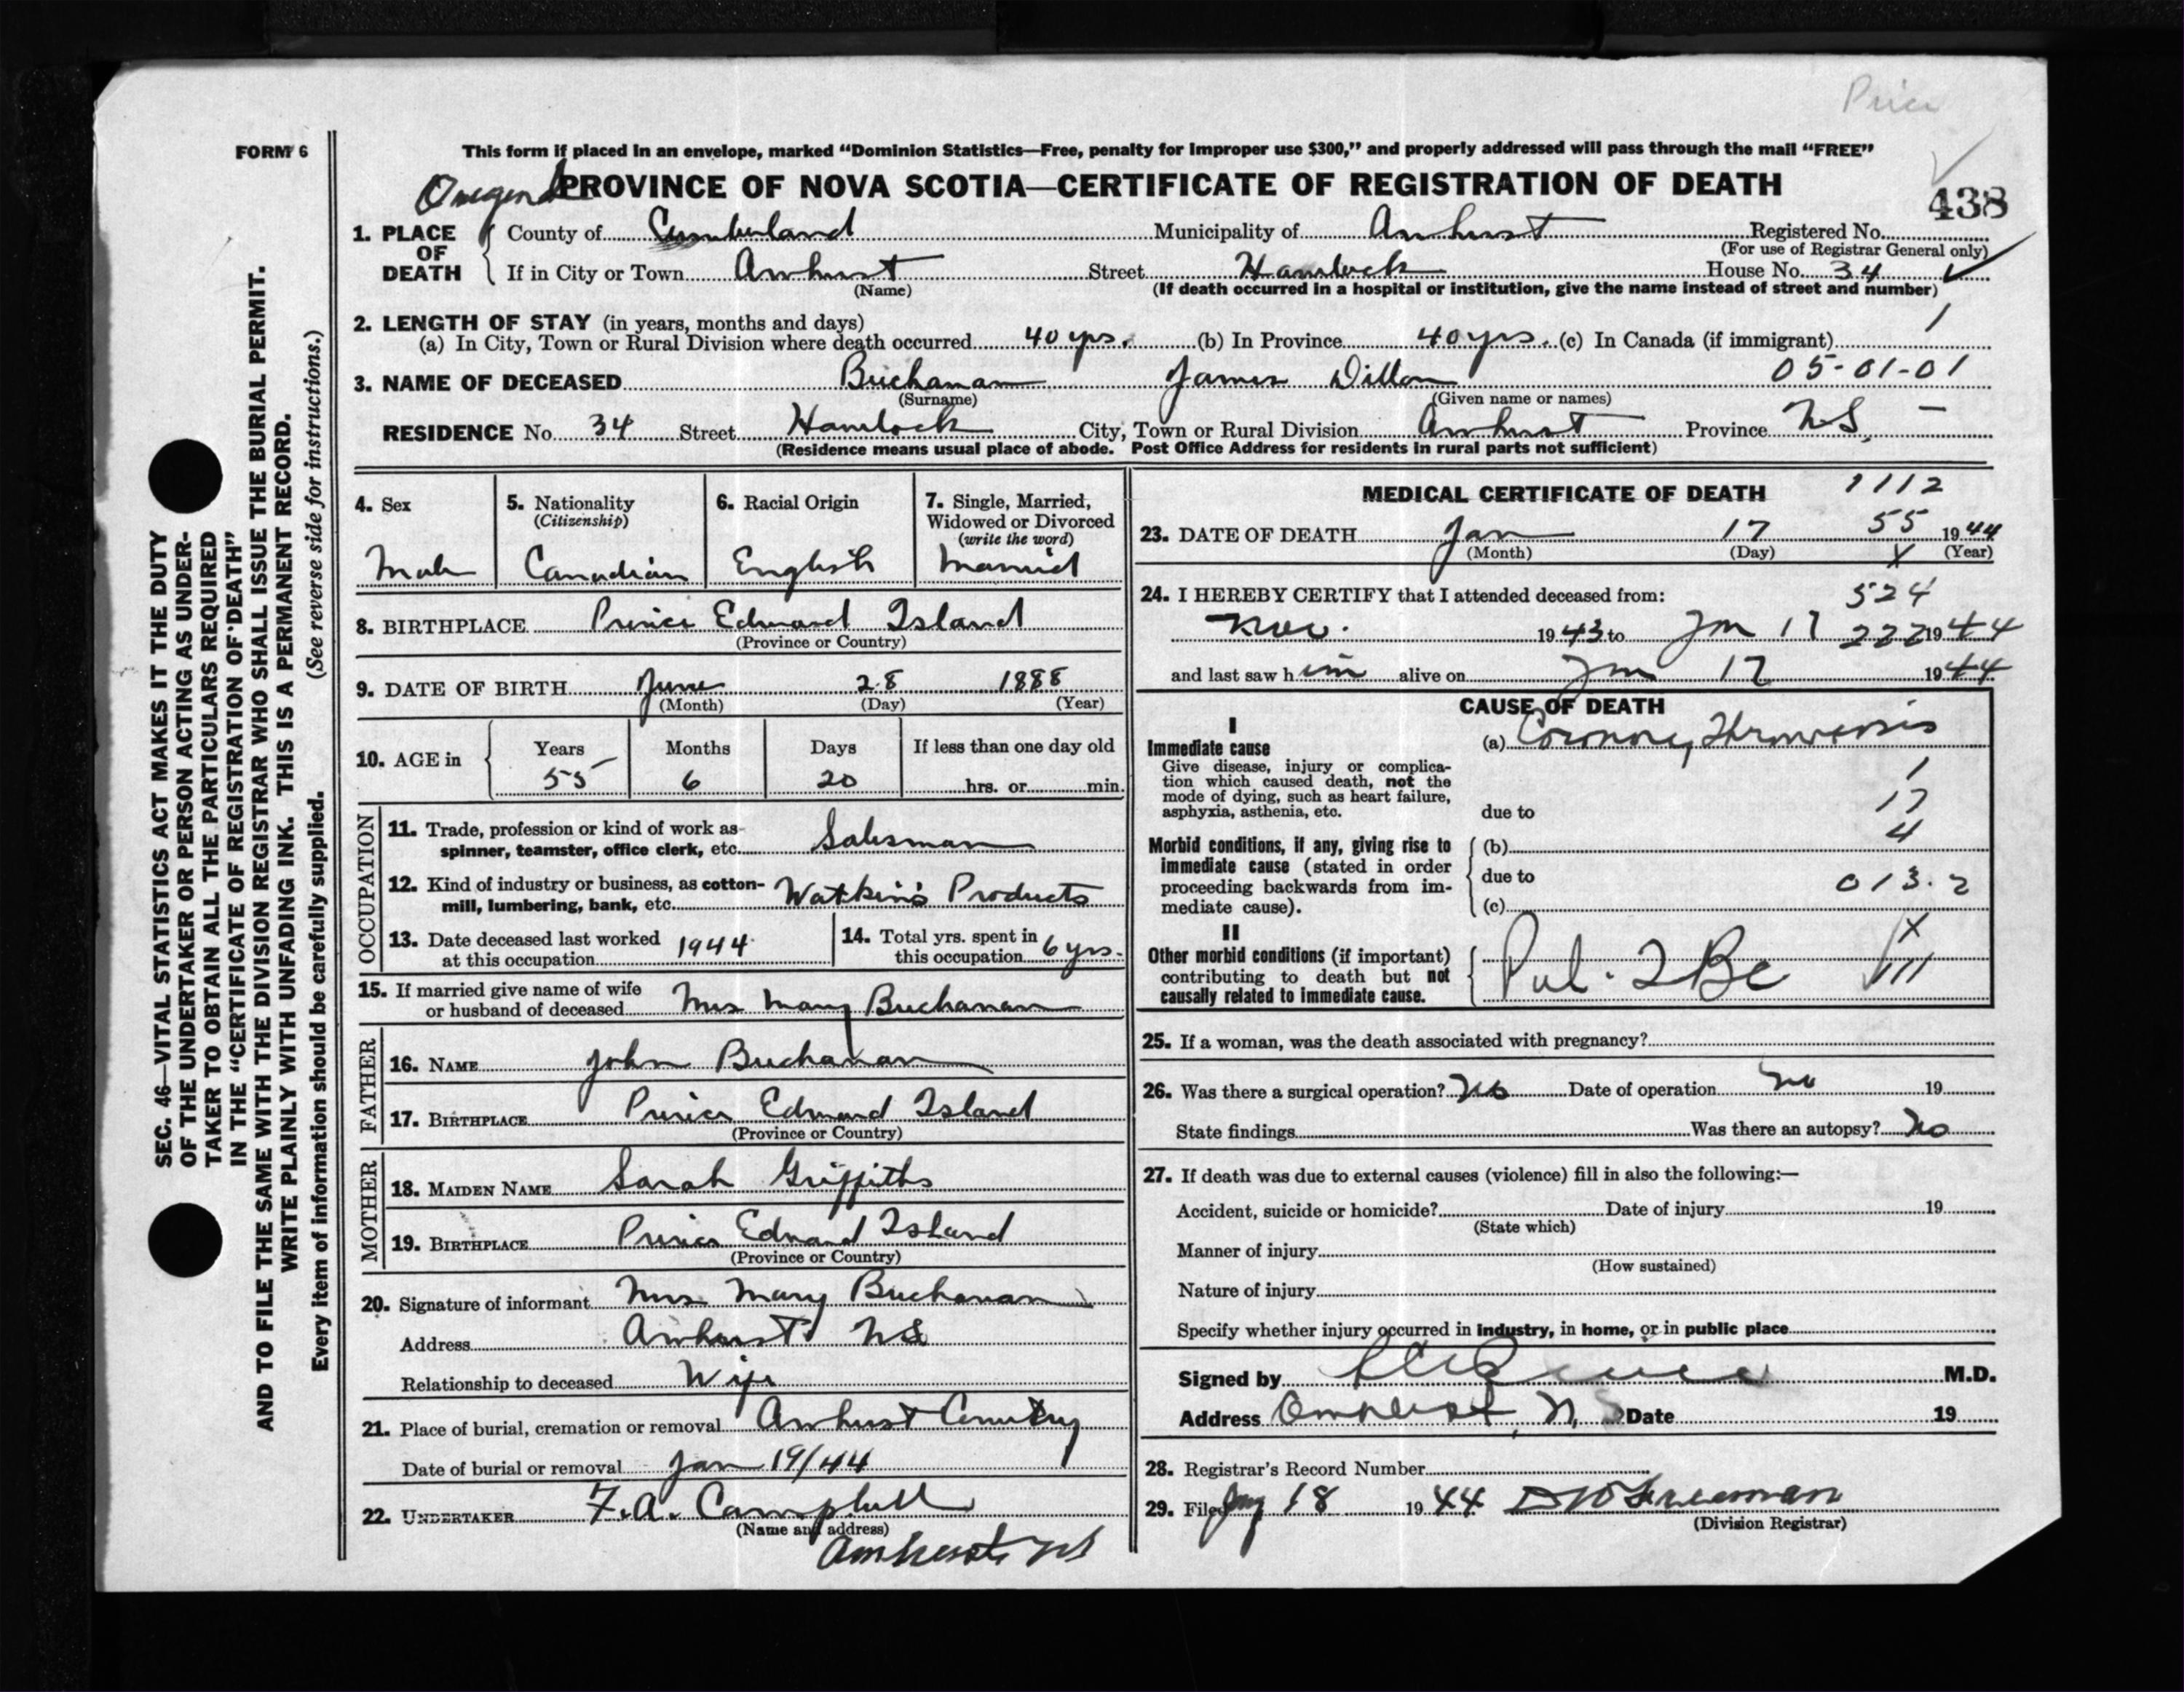 Price
FORM 6
This form if placed in an envelope, marked “Dominion Statistics—Free, penalty for improper use $300,” and properly addressed will pass through the mail “FREE”
PROVINCE OF NOVA SCOTIA—CERTIFICATE OF REGISTRATION OF DEATH
438
1. PLACE OF DEATH
County of Cumberland Municipality of Amherst Registered No.
(For use of Registrar General only)
If in City or Town Amherst Street Hamlock House No. 34
(Name)
(If death occurred in a hospital or institution, give the name instead of street and number)
2. LENGTH OF STAY (in years, months and days) 1
(a) In City, Town or Rural Division where death occurred 40 yrs. (b) In Province 40 yrs. (c) In Canada (if immigrant)
05-01-01
3. NAME OF DECEASED Buchanan James Dillon
(Surname) (Given name or names)
RESIDENCE No. 34 Street Hamlock City, Town or Rural Division Amherst Province N.S. —
(Residence means usual place of abode. Post Office Address for residents in rural parts not sufficient)
4. Sex
Male
5. Nationality
(Citizenship)
Canadian
6. Racial Origin
English
7. Single, Married,
Widowed or Divorced
(write the word)
Married
8. BIRTHPLACE Prince Edward Island
(Province or Country)
9. DATE OF BIRTH June 28 1888
(Month) (Day) (Year)
10. AGE in
Years Months Days If less than one day old
55 6 20 hrs. or min.
OCCUPATION
11. Trade, profession or kind of work as
spinner, teamster, office clerk, etc. Salesman
12. Kind of industry or business, as cotton-
mill, lumbering, bank, etc. Watkin's Products
13. Date deceased last worked
at this occupation 1944
14. Total yrs. spent in
this occupation 6 yrs.
15. If married give name of wife
or husband of deceased Mrs Mary Buchanan
FATHER
16. NAME John Buchanan
17. BIRTHPLACE Prince Edward Island
(Province or Country)
MOTHER
18. MAIDEN NAME Sarah Griffiths
19. BIRTHPLACE Prince Edward Island
(Province or Country)
20. Signature of informant Mrs Mary Buchanan
Address Amherst NS
Relationship to deceased Wife
21. Place of burial, cremation or removal Amherst Cemetry
Date of burial or removal Jan 19/44
22. UNDERTAKER F.A. Campbell
(Name and address)
Amherst NS
MEDICAL CERTIFICATE OF DEATH 1112
23. DATE OF DEATH Jan 17 55 1944
(Month) (Day) X (Year)
24. I HEREBY CERTIFY that I attended deceased from: 524
Nov. 1943 to Jan 17 222 1944
and last saw him alive on Jan 17 1944
CAUSE OF DEATH
I
Immediate cause (a) Coronary Thrombosis
Give disease, injury or complica-
tion which caused death, not the
mode of dying, such as heart failure,
asphyxia, asthenia, etc.
1
17
due to
4
Morbid conditions, if any, giving rise to
immediate cause (stated in order
proceeding backwards from im-
mediate cause).
(b)
due to
013.2
(c)
II
Other morbid conditions (if important)
contributing to death but not
causally related to immediate cause.
Pul. TBc
X
111
25. If a woman, was the death associated with pregnancy?
26. Was there a surgical operation? No Date of operation no 19
State findings Was there an autopsy? No
27. If death was due to external causes (violence) fill in also the following:—
Accident, suicide or homicide? Date of injury 19
(State which)
Manner of injury
(How sustained)
Nature of injury
Specify whether injury occurred in industry, in home, or in public place
Signed by M.D.
Address Amherst, N.S Date 19
28. Registrar's Record Number
29. Filed 18 1944
(Division Registrar)
SEC. 46—VITAL STATISTICS ACT MAKES IT THE DUTY
OF THE UNDERTAKER OR PERSON ACTING AS UNDER-
TAKER TO OBTAIN ALL THE PARTICULARS REQUIRED
IN THE “CERTIFICATE OF REGISTRATION OF DEATH”
AND TO FILE THE SAME WITH THE DIVISION REGISTRAR WHO SHALL ISSUE THE BURIAL PERMIT.
WRITE PLAINLY WITH UNFADING INK. THIS IS A PERMANENT RECORD.
Every item of information should be carefully supplied. (See reverse side for instructions.)